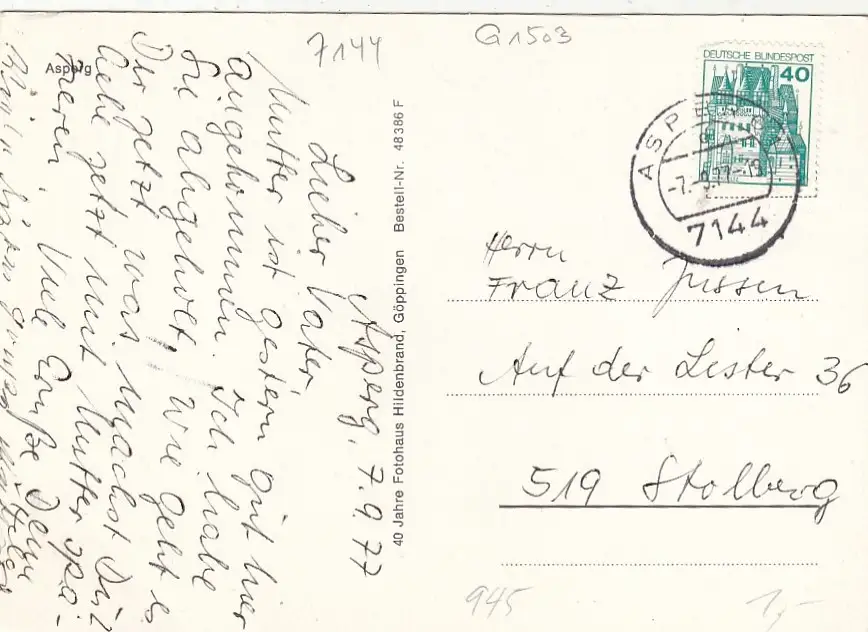 7144
G1503
Asperg
DEUTSCHE BUNDESPOST
40
ASPERG
-7.-9.77-19
7144
Asperg, 7.9.77
Lieber Vater,
Mutter ist gestern gut hier
angekommen. Ich habe
Sie abgeholt. Wie geht es
Dir jetzt, was machst Du?
Gehe jetzt mit Mutter spa-
zieren. Viele Grüße Dein
40 Jahre Fotohaus Hildenbrand, Göppingen Bestell-Nr. 48386 F
Herrn
Franz Jussen
Auf der Liester 36
519 Stolberg
945
1,-